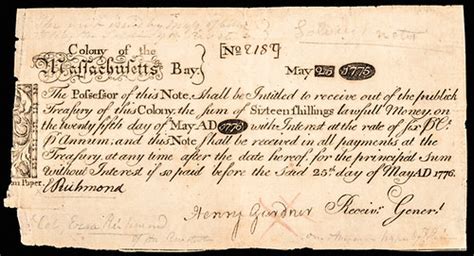 Soldiers note
Colony of the [No 2189] May 25 1775
Massachusetts Bay.
The Possessor of this Note, shall be Intitled to receive out of the publick
Treasury of this Colony, the sum of Sixteen Shillings lawfull Money, on
the twenty fifth day of May. AD 1776 with Interest at the rate of six P Ct
P Annum; and this Note shall be received in all payments at the
Treasury at any time after the date hereof. for the principal Sum
without Interest if so paid before the Said 25th day of May AD 1776.
Richmond
Henry Gardner Receivr Generl
Col. Ezra Richmond